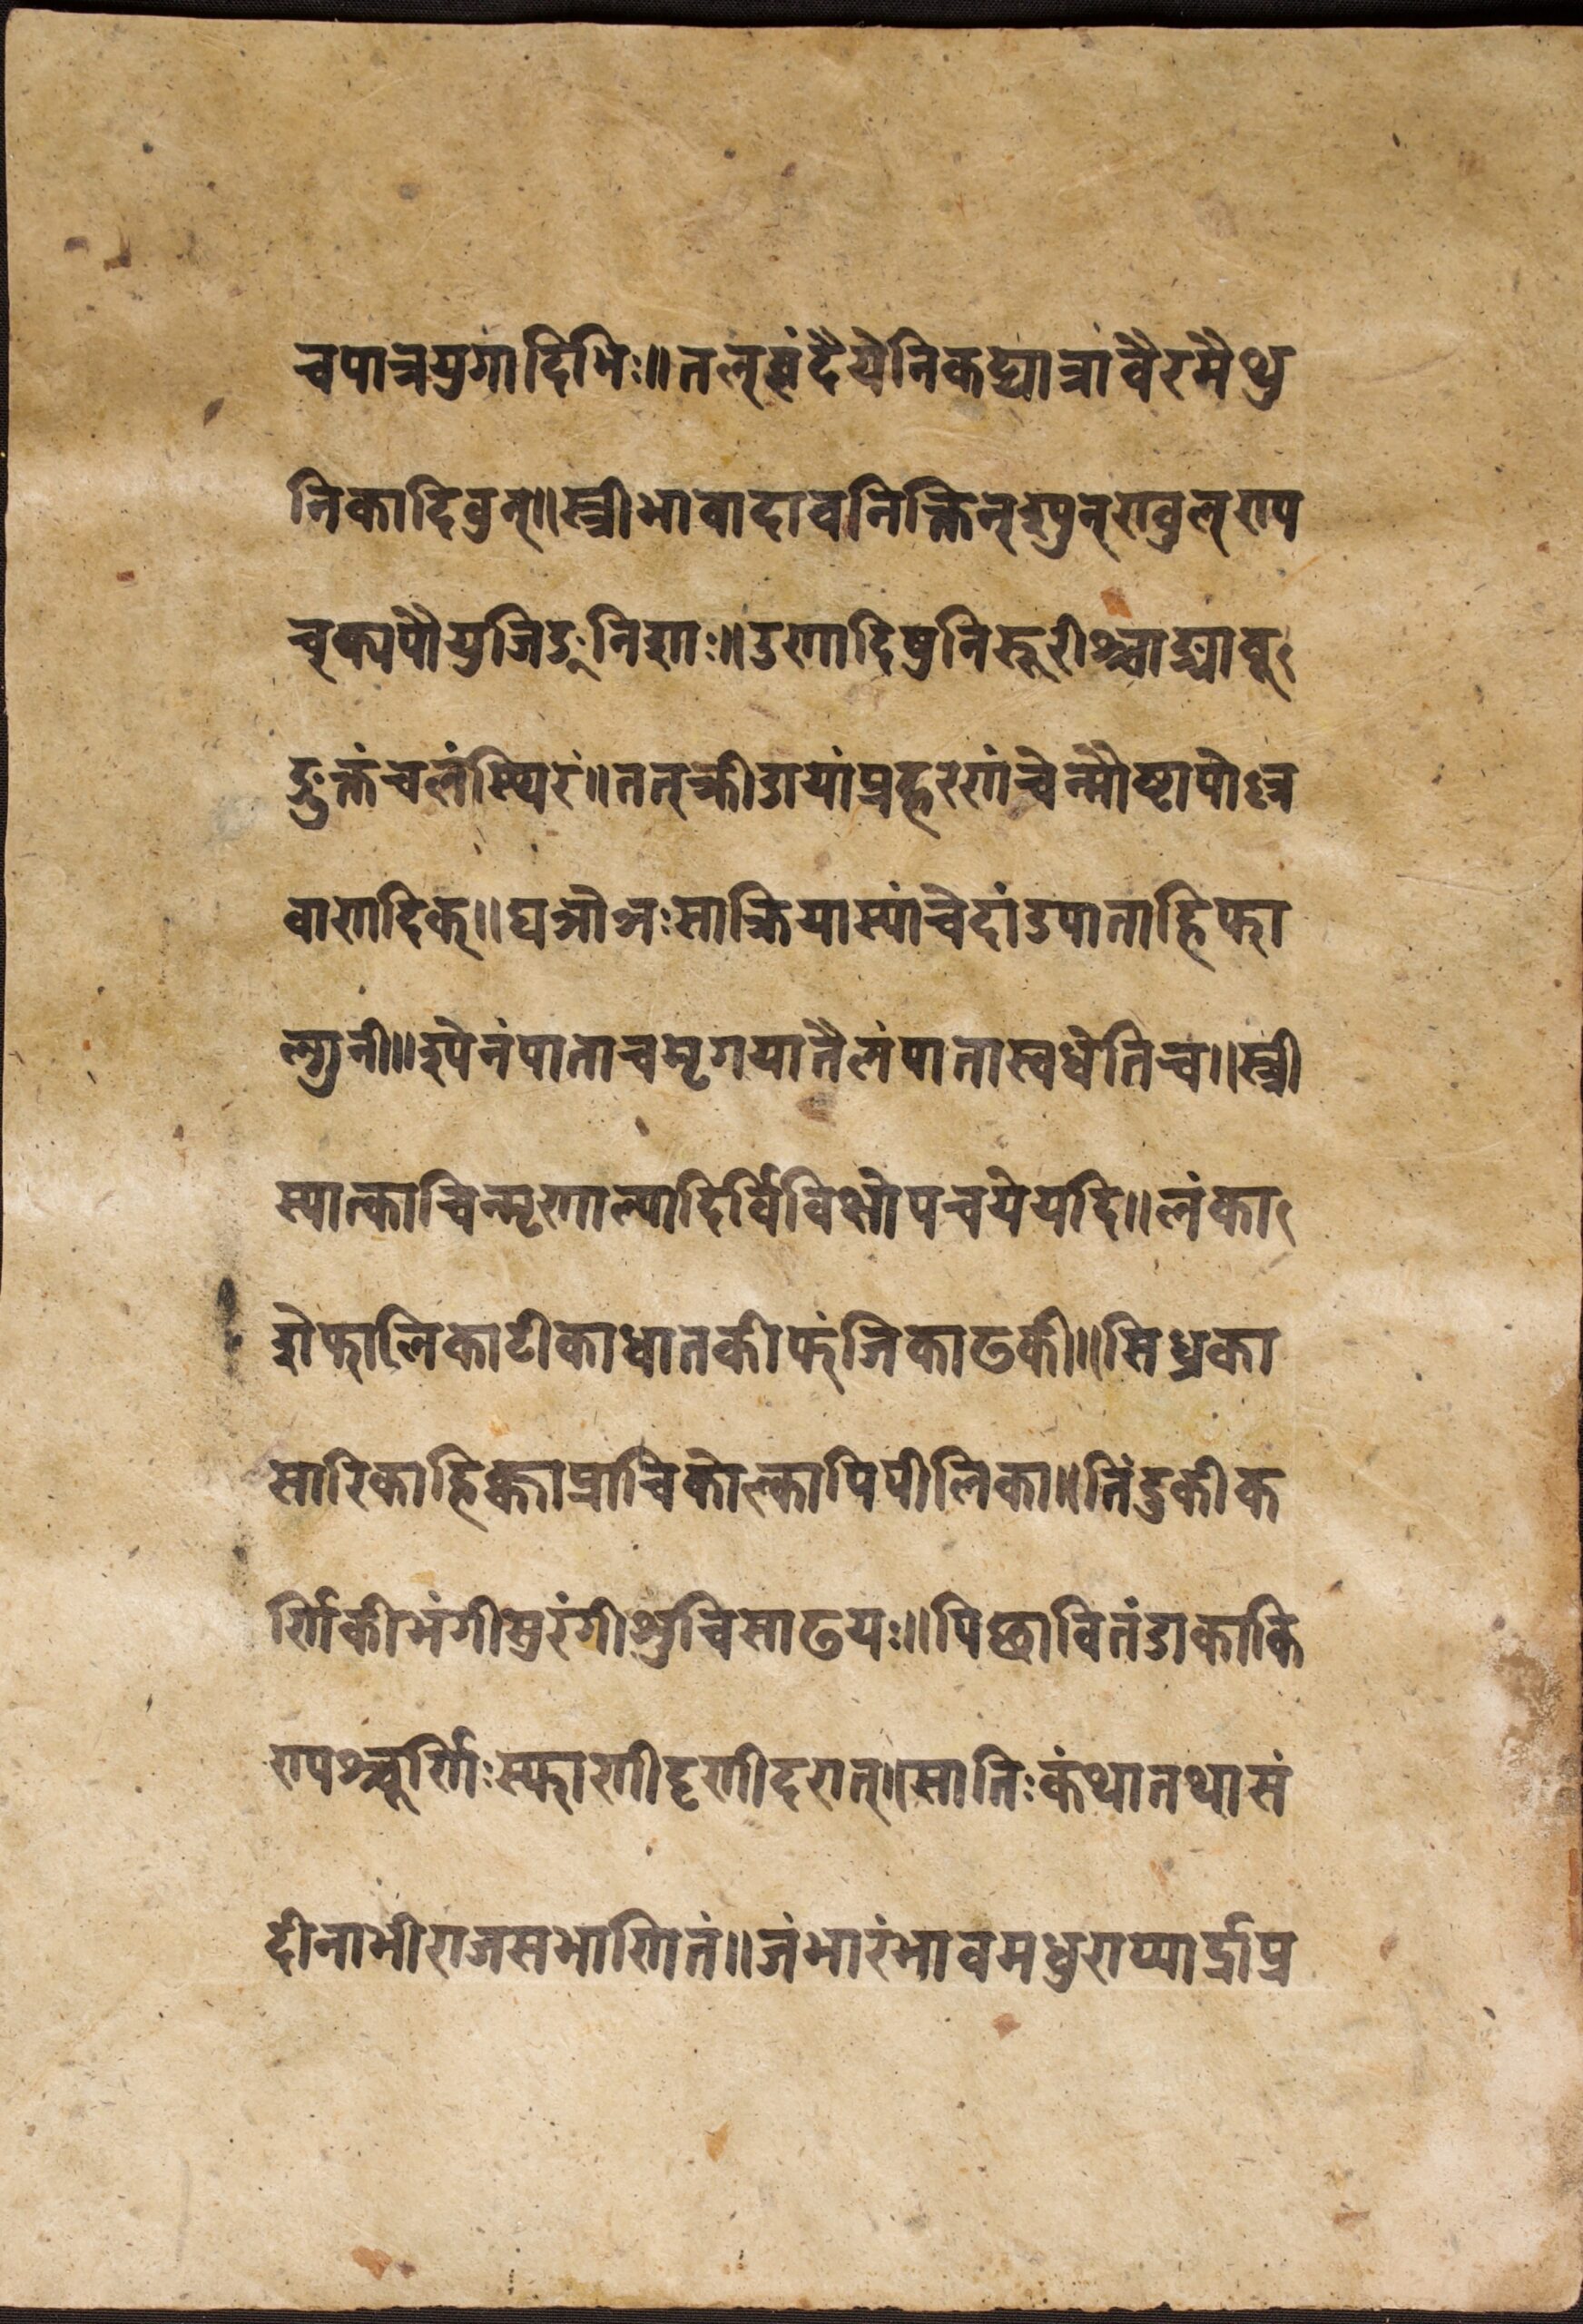 चपात्रयुगादिभिः॥तल्वृंदेयेनिकढ्यात्रावैरमैथु
निकादिवुन्॥स्त्रीभावादावनिक्तिन्ण्वुन्णवुल्णप
च्क्यपौयुजिङ्निशाः॥उणादिषुनिरूरीश्चङ्याबू
ङुन्तंचलंस्थिरं॥तत्क्रीडायांप्रहरणंचेन्मौष्टापोऽत्र
वाणदिक्॥घञोञःसाक्रियास्यांचेदांडपाताहिफा
ल्गुनी॥श्येनंपाताचमृगयातैलंपातास्वधेतिच॥स्त्री
स्यात्काचिन्मृणाल्यादिर्विविक्षोपचयेयदि॥लंका
शेफालिकाटीकाधातकीफंजिकाढकी॥सिध्रका
सारिकाहिक्काप्राचिकोल्कापिपीलिका॥तिंदुकीक
र्णिकीभंगीसुरंगीशुचिसाढयः॥पिछावितंडाकाकि
ण्यश्चूर्णिःस्फाणीद्रुणीदरात्॥सातिःकंथातथासं
दीनाभीराजसभाणितं॥जंभारंभावमधुराप्यार्द्राप्र